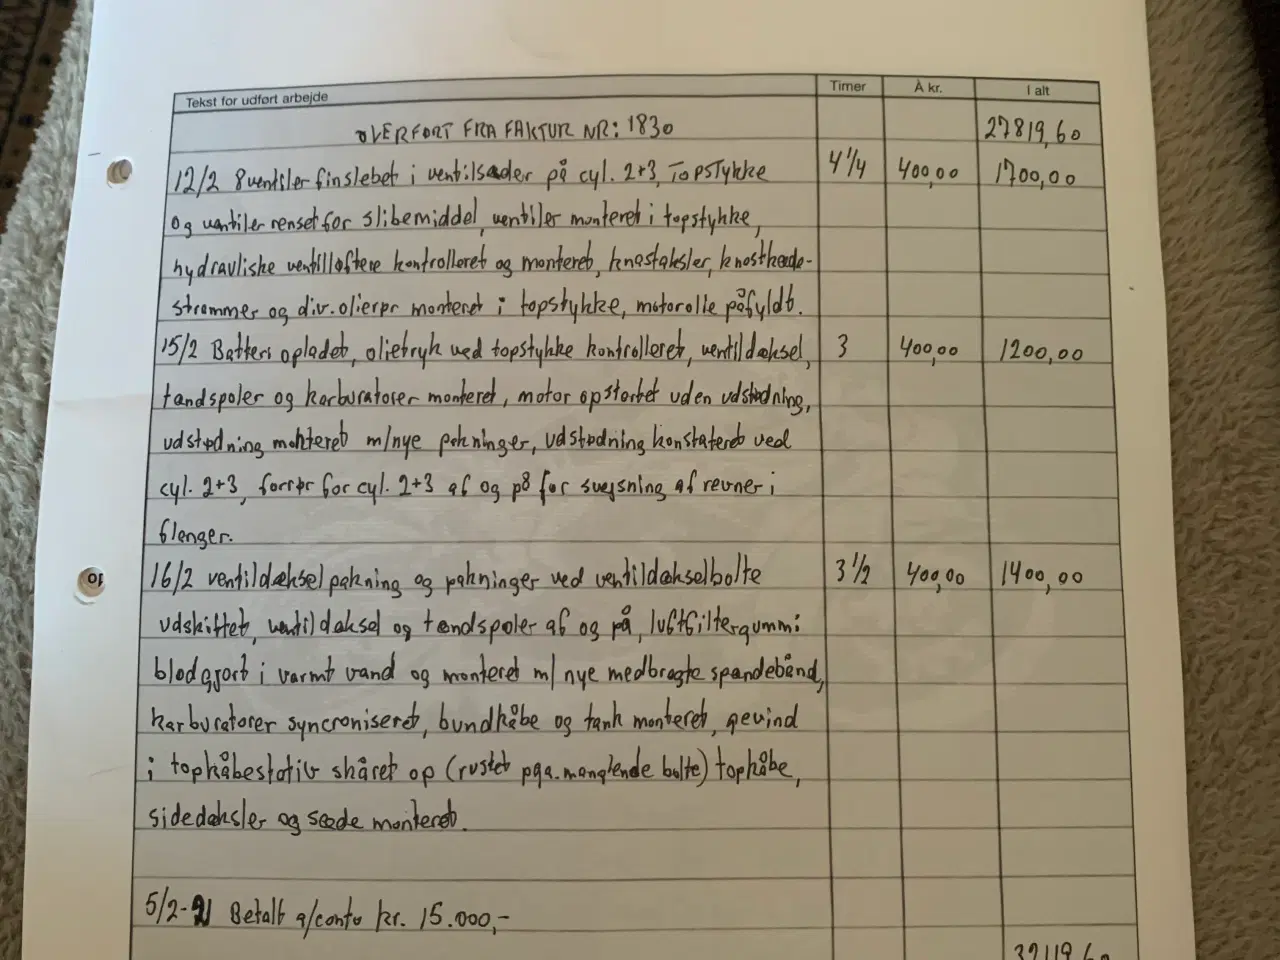 Tekst for udført arbejde Timer À kr. I alt
OVERFØRT FRA FAKTUR NR: 1830 27819,60
12/2 8 ventiler finslebet i ventilsæder på cyl. 2+3, Topstykke 4 1/4 400,00 1700,00
og ventiler renset for slibemiddel, ventiler monteret i topstykke,
hydravliske ventilløftere kontrolleret og monteret, knastaksler, knastkæde-
strammer og div. olierør monteret i topstykke, motorolie påfyldt.
15/2 Batteri opladet, olietryk ved topstykke kontrolleret, ventildæksel, 3 400,00 1200,00
tændspoler og karburatorer monteret, motor opstartet uden udstødning,
udstødning monteret m/nye pakninger, udstødning konstateret ved
cyl. 2+3, forrør for cyl. 2+3 af og på for svejsning af revner i
flanger.
16/2 ventildækselpakning og pakninger ved ventildækselbolte 3 1/2 400,00 1400,00
udskiftet, ventildæksel og tændspoler af og på, luftfiltergummi
blødgjort i varmt vand og monteret m/ nye medbragte spændebånd,
karburatorer syncroniseret, bundkåbe og tank monteret, gevind
i topkåbestativ skåret op (rustet pga. manglende bolte) topkåbe,
sidedæksler og sæde monteret.
5/2-21 Betalt a/conto kr. 15.000,-
32119,60
10